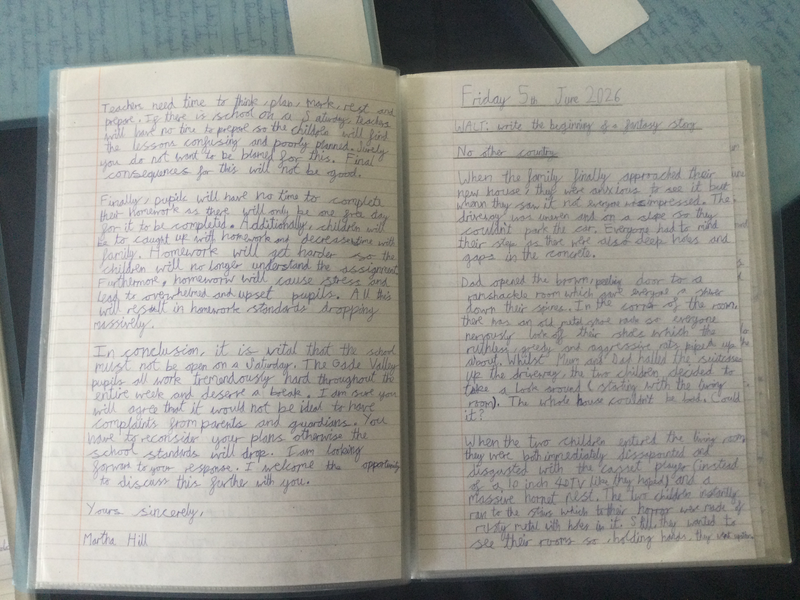 Teachers need time to think, plan, mark, rest and
prepare. If there is school on a Saturday, teachers
will have no time to prepare so the children will find
the lessons confusing and poorly planned. Surely
you do not want to be blamed for this. Final
consequences for this will not be good.
Finally, pupils will have no time to complete
their homework as there will only be one free day
for it to be completed. Additionally, children will
be to caught up with homework and decrease time with
family. Homework will get harder so the
children will no longer understand the assignment
Furthermore, homework will cause stress and
lead to overwhelmed and upset pupils. All this
will result in homework standards dropping
massively.
In conclusion, it is vital that the school
must not be open on a Saturday. The Gade Valley
pupils all work tremendously hard throughout the
entire week and deserve a break. I am sure you
will agree that it would not be ideal to have
complaints from parents and guardians. You
have to reconsider your plans otherwise the
school standards will drop. I am looking
forward to your response. I welcome the opportunity
to discuss this further with you.
Yours sincerely,
Martha Hill
Friday 5th June 2026
WALT: write the beginning of a fantasy story
No other country
When the family finally approached their
new house, they were anxious to see it but
when they saw it not everyone was impressed. The
driveway was uneven and on a slope so they
couldn't park the car. Everyone had to mind
their step as there were also deep holes and
gaps in the concrete.
Dad opened the brown, peeling door to a
ramshackle room which gave everyone a shiver
down their spines. In the corner of the room,
there was an old metal shoe rack so everyone
nervously took off their shoes which the
ruthless, greedy and aggressive rats
about. Whilst Mum and Dad halled the suitcases
up the driveway, the two children decided to
take a look around (starting with the living
room). The whole house couldn't be bad. Could
it?
When the two children entered the living room
they were both immediately dissapointed and
disgusted with the casset player (instead
of a 10 inch TV like they hoped) and a
massive hornet nest. The two children instantly
ran to the stairs which to their horror was made of
rusty metal with holes in it. Still, they wanted to
see their rooms so, holding hands, they